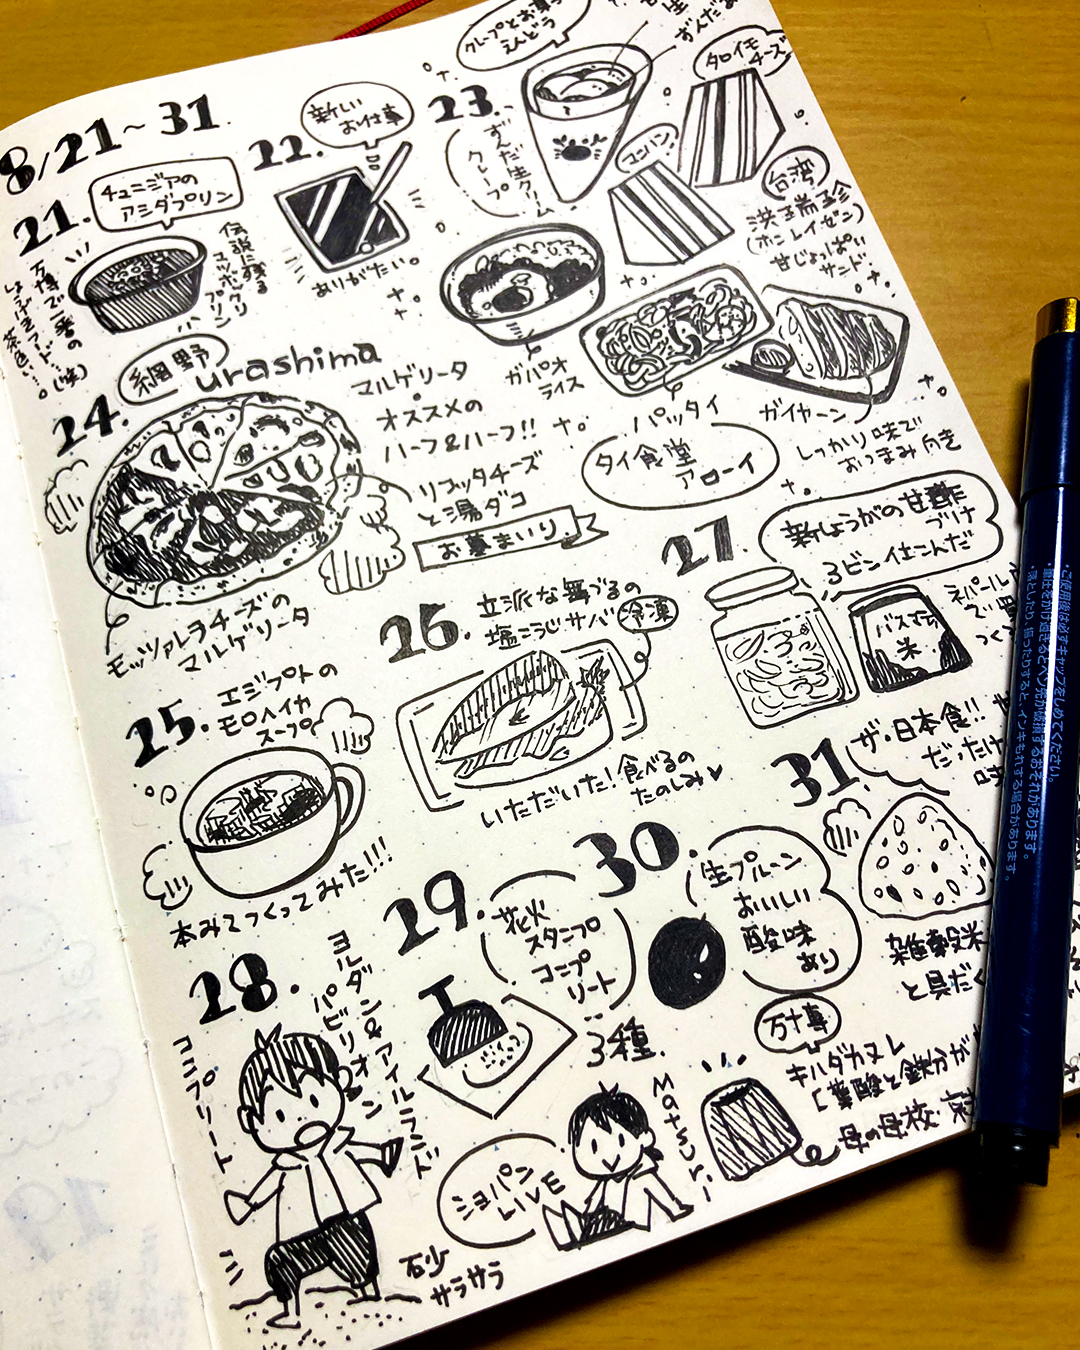 8/21~31
21.
チュニジアの
アシダプリン
伝説に残る
マツボックリ
プリン
万博で一番の
しょうげきフード(笑)
茶色い…
22.
新しい
お仕事
ありがたい。
23.
クレープとお豆
えんどう
ずんだ生クリーム
クレープ
コンパン
タロイモ
チーズ
台湾
洪瑞珍
(ホンレイゼン)
甘じょっぱい
サンド
ガパオ
ライス
パッタイ
ガイヤーン
しっかり味で
おつまみ向き
タイ食堂
アローイ
24.
網野
urashima
マルゲリータ
・
オススメの
ハーフ&ハーフ!!
リコッタチーズ
と湯ダコ
お墓まいり
モッツァレラチーズの
マルゲリータ
25.
エジプトの
モロヘイヤ
スープ
本みてつくってみた!!!
26.
立派な舞づるの
塩こうじサバ
冷凍
いただいた!食べるの
たのしみ♥
27
新しょうがの甘酢
づけ
3ビン仕こんだ
バスマティ
米
ネパール
28.
ヨルダン&アイルランド
パビリオン
コンプリート
石少
サラサラ
29.
花火
スタンプ
コンプ
リート
3種.
ショパン
LIVE
Matsuri
30.
生プルーン
おいしい
酸味
あり
万博
キハダカヌレ
[葉酸と鉄分が
母の母校
31.
ザ・日本食!!
だったけ
雑穀米
と具だく
・ご使用後は必ずキャップをしめてください。
・筆圧をかけ過ぎるとペン先が破損するおそれがあります。
・落としたり、振ったりすると、インキもれする場合があります。